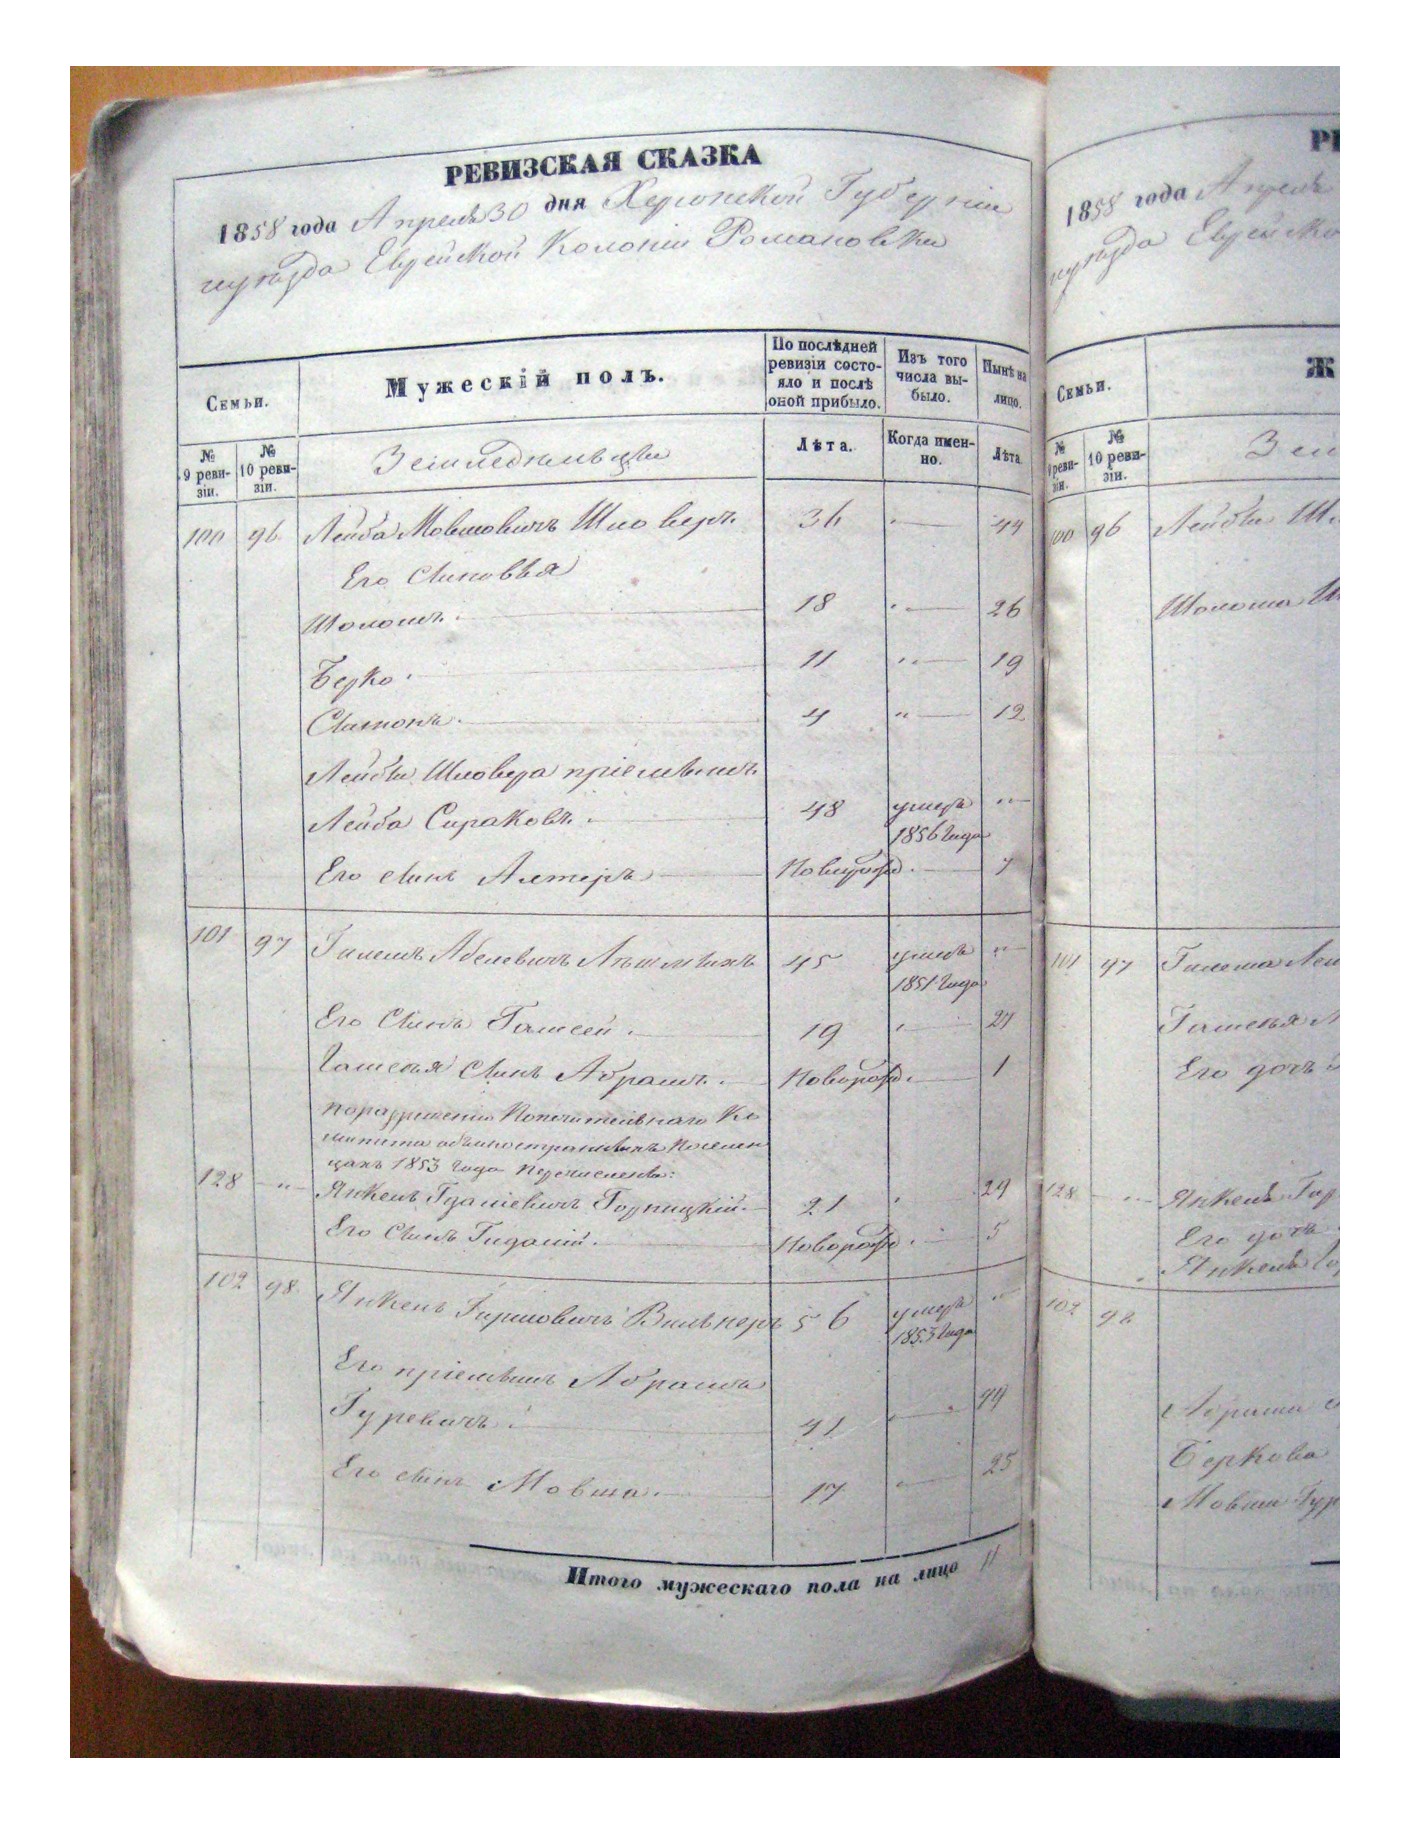 РЕВИЗСКАЯ СКАЗКА
1858 года Апреля 30 дня Херсонской Губерніи
и уѣзда Еврейской Колоніи Романовки
Семьи.
Мужескій полъ.
По послѣдней ревизіи состояло и послѣ оной прибыло.
Изъ того числа выбыло.
Нынѣ на лицо.
№ 9 ревизіи.
№ 10 ревизіи.
Земледѣльцы
Лѣта.
Когда именно.
Лѣта.
100 96 Лейба Мовшовичъ 36 44
Его Сыновья
Шоломъ. 18 26
Берко. 11 19
4 12
Лейбы пріемышъ
Лейба Сираковъ. 48 умеръ 1856 года
Его сынъ Алтеръ Новорож 7
101 97 Абелевичъ 45 умеръ 1851 года
Его Сынъ 19 27
Сынъ Абрамъ. Новорож. 1
по разрешенію Попечительнаго Ко
митета объ иностранныхъ Поселен
цахъ 1853 года Перечислены:
128 Янкель 21 29
Его Сынъ Гидалій. Новорож. 5
102 98 Янкель Гиршовичъ 56 умеръ 1853 года
Его пріемышъ Абрамъ
Гуревичъ. 41 49
Его сынъ Мовша. 17 25
Итого мужескаго пола на лицо 11
РЕ
1858 года Апреля
и уѣзда Еврейско
Семьи.
Ж
№ 9 ревизіи.
№ 10 ревизіи.
Зем
100 96 Лейбы
Шолома
101 97
Его дочь
128 Янкеля
Его дочь
Янкеля
102 98
Абрама
Беркова
Мовши Гур